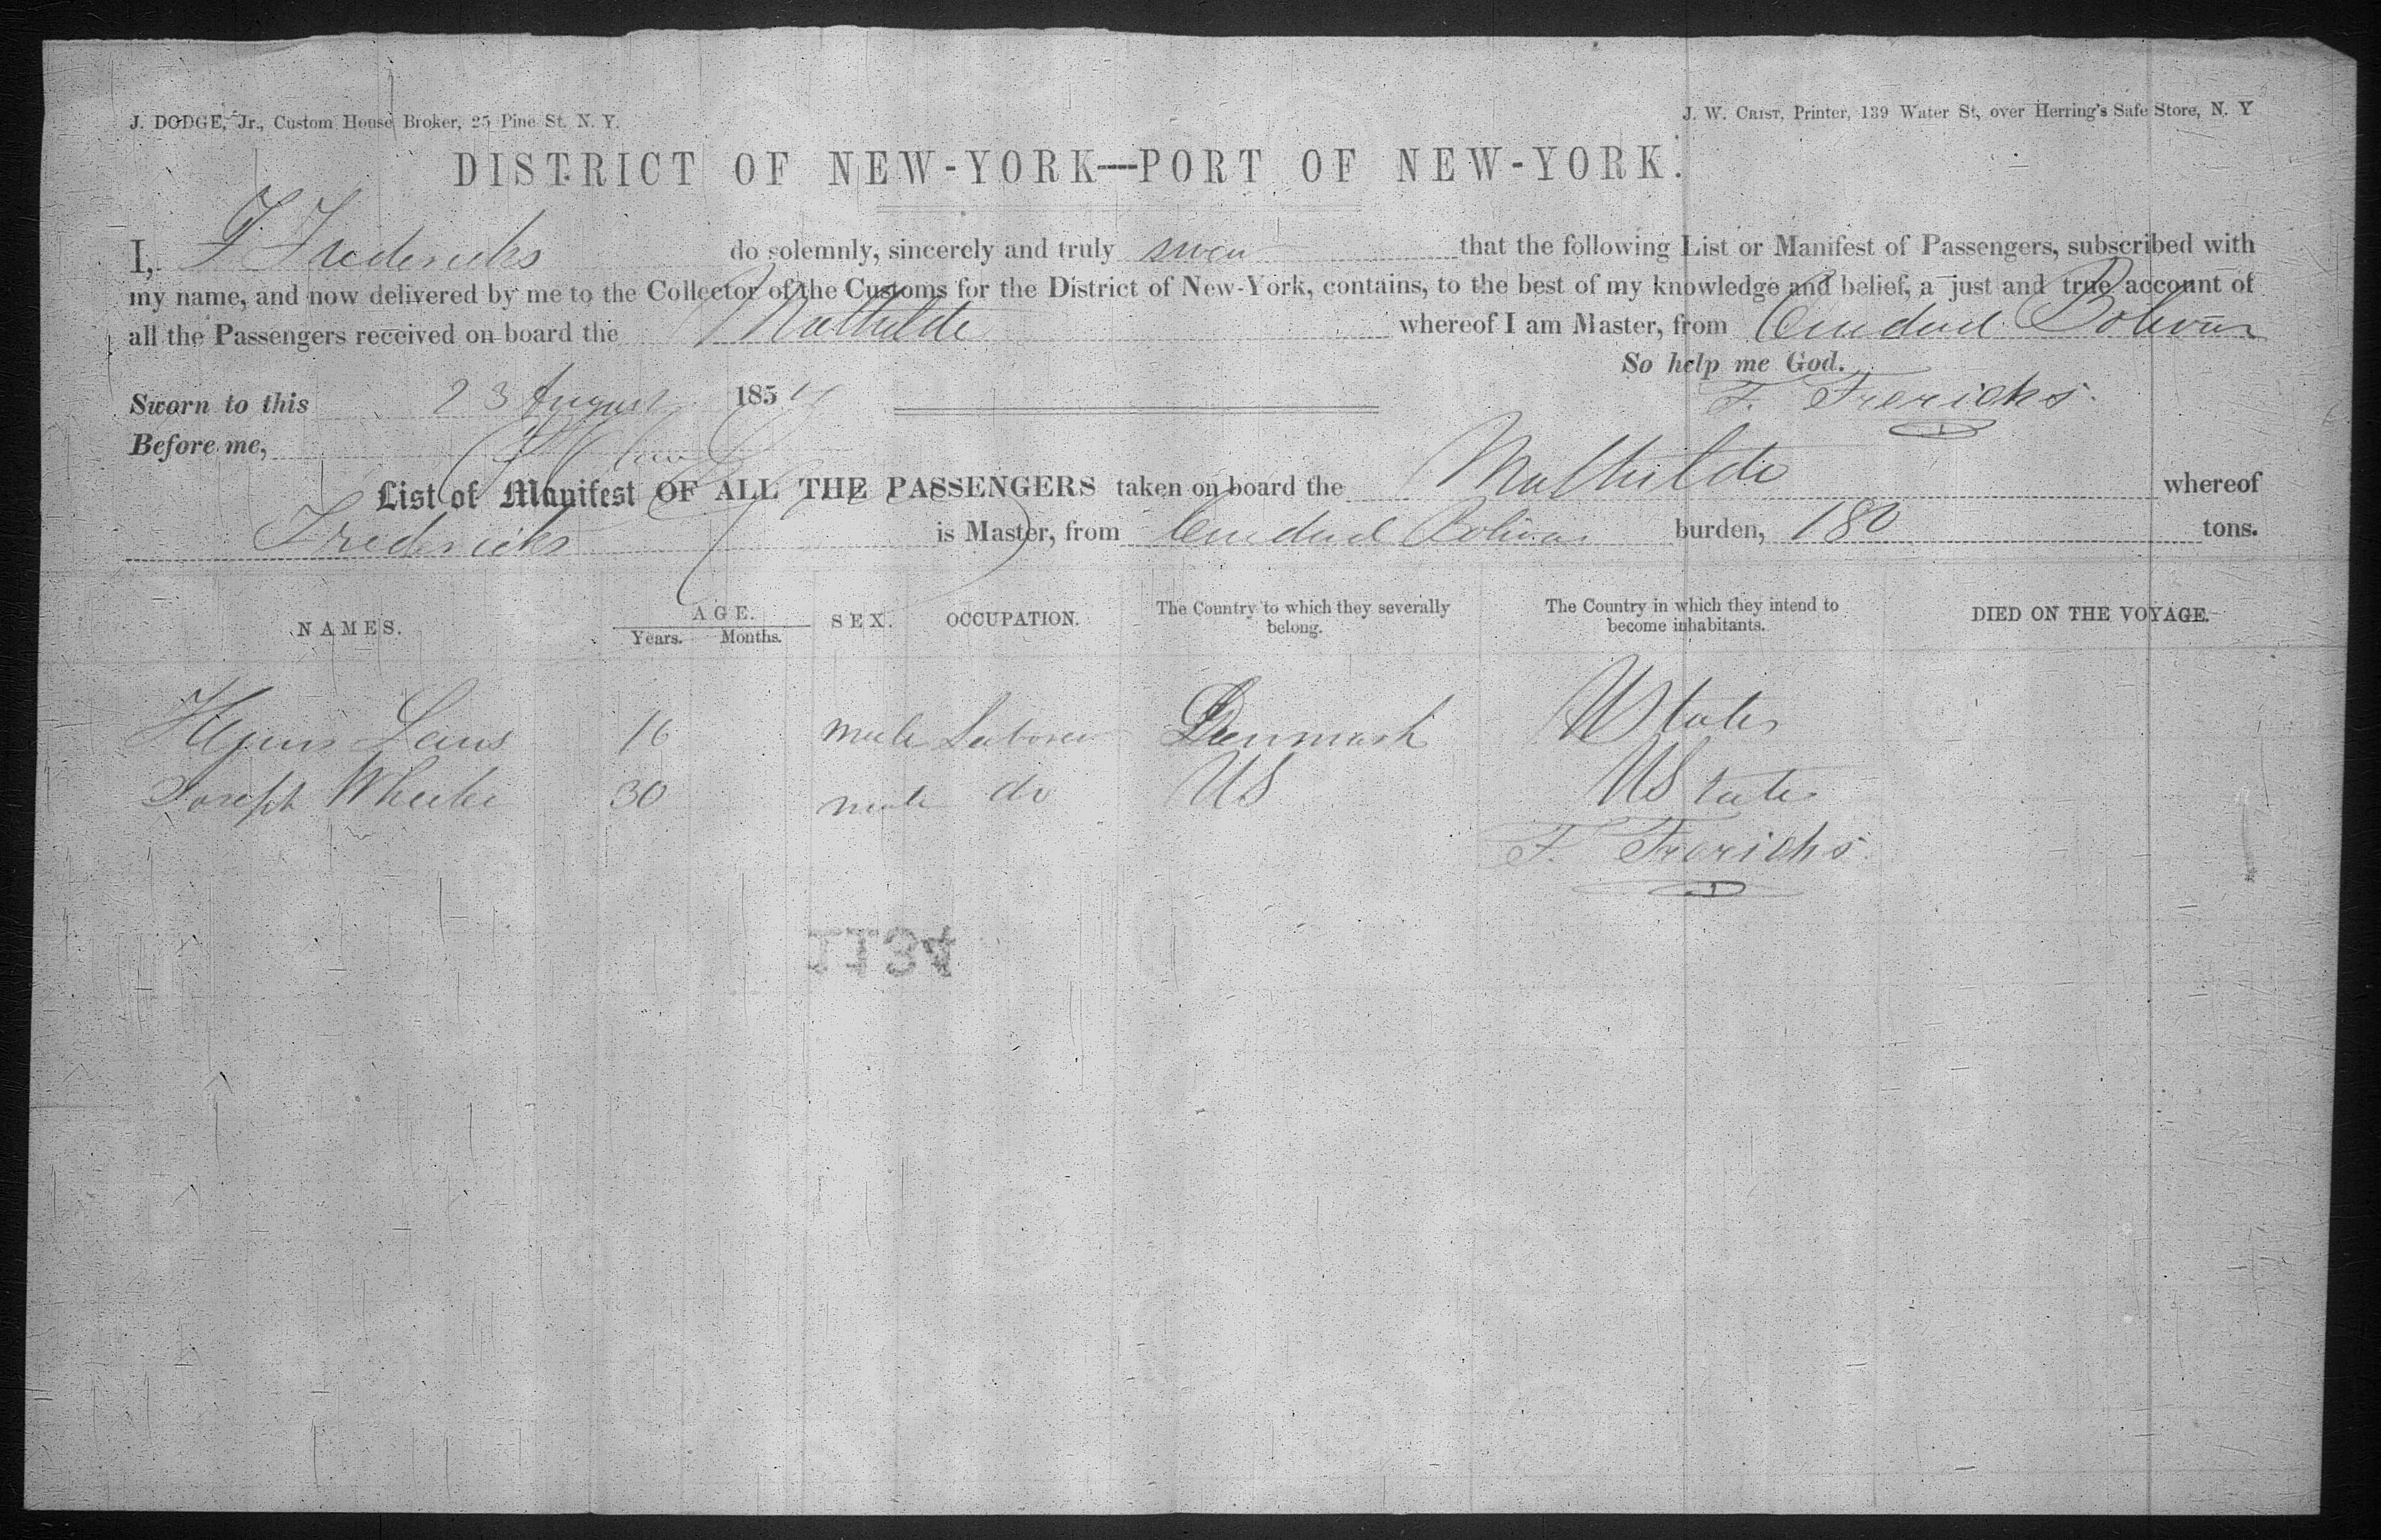 J. DODGE, Jr., Custom House Broker, 25 Pine St. N. Y.
J. W. CRIST, Printer, 139 Water St, over Herring's Safe Store, N. Y
DISTRICT OF NEW-YORK—PORT OF NEW-YORK.
I, F Fredericks do solemnly, sincerely and truly swear that the following List or Manifest of Passengers, subscribed with
my name, and now delivered by me to the Collector of the Customs for the District of New-York, contains, to the best of my knowledge and belief, a just and true account of
all the Passengers received on board the Mathilde whereof I am Master, from Ciudad Bolivar
So help me God.
Sworn to this 23 August 1854
F. Frerichs
Before me,
List of Manifest OF ALL THE PASSENGERS taken on board the Mathilde whereof
Fredericks is Master, from Ciudad Bolivar burden, 180 tons.
NAMES. AGE. SEX. OCCUPATION. The Country to which they severally belong. The Country in which they intend to become inhabitants. DIED ON THE VOYAGE.
Years. Months.
16 male Laborer Denmark U States
Joseph Wheeler 30 male do US U States
F. Frerichs
1134